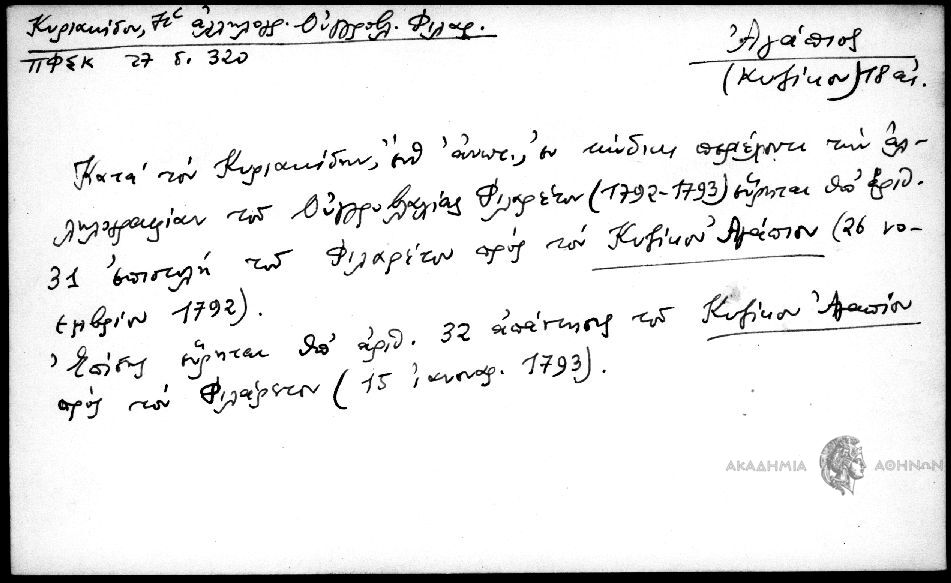 Κυριακίδου, Περὶ ἀλληλογρ. Οὐγγροβλ. Φιλαρ.
ΠΦΣΚ 27 σ. 320
Ἀγάπιος
(Κυζίκου) 18 αἰ.
Κατὰ τὸν Κυριακίδην, ἔνθ' ἀνωτ., ἐν κώδικι περιέχοντι τὴν ἀλ-
ληλογραφίαν τοῦ Οὐγγροβλαχίας Φιλαρέτου (1792-1793) εὕρηται ὑπ' ἀριθ.
31 ἐπιστολὴ τοῦ Φιλαρέτου πρὸς τὸν Κυζίκου Ἀγάπιον (26 νο-
εμβρίου 1792).
Ἐπίσης εὕρηται ὑπ' ἀριθ. 32 ἀπάντησις τοῦ Κυζίκου Ἀγαπίου
πρὸς τὸν Φιλάρετον (15 ἰανουαρ. 1793).
ΑΚΑΔΗΜΙΑ ΑΘΗΝΩΝ